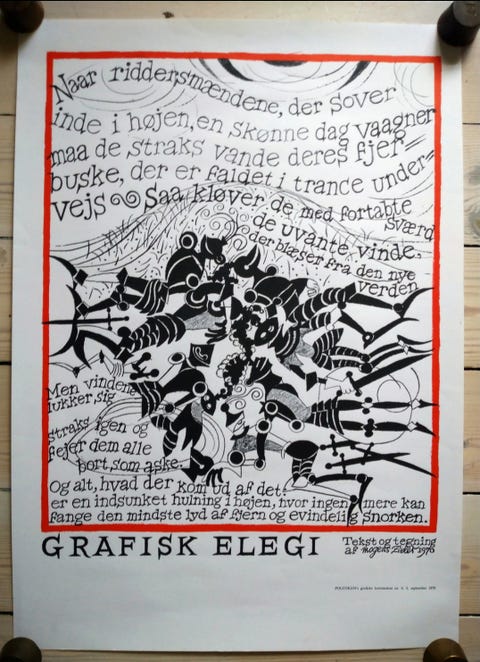 Naar riddersmændene, der sover
inde i højen, en skønne dag vaagner
maa de straks vande deres fjer=
buske, der er faldet i trance under=
vejs Saa kløver de med fortabte
sværd
de uvante vinde.
der blæser fra den nye
verden
Men vindene
lukker, sig
straks igen og
fejer dem alle
bort, som aske.
Og alt, hvad der kom ud af det:
er en indsunket hulning i højen, hvor ingen mere kan
fange den mindste lyd af fjern og evindelig snorken.
GRAFISK ELEGI
Tekst og tegning
af mogens Zieler 1976
POLITIKEN's grafiske kunstmaaned nr. september 1976